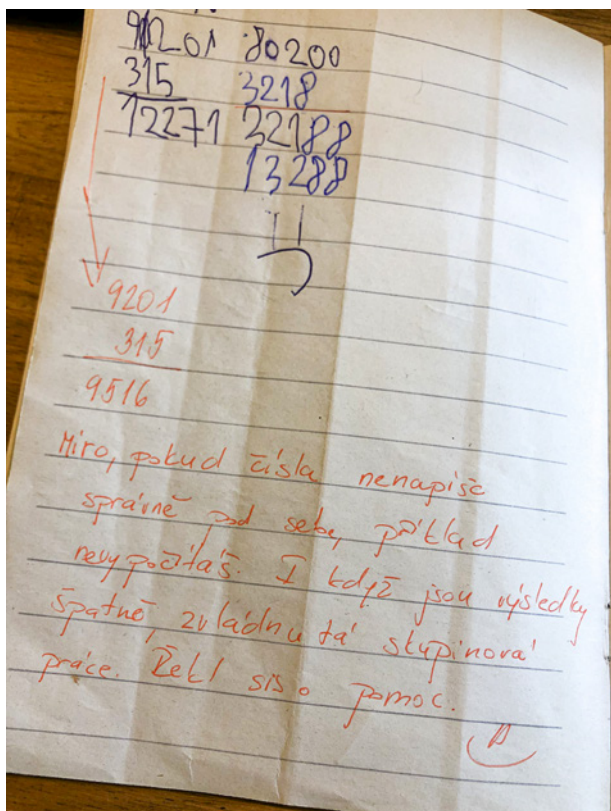 9201 80200
315 3218
12271 32188
13288
9201
315
9516
Miro, pokud čísla nenapíše
správně pod sebe, příklad
nevypočítáš. I když jsou výsledky
špatně, zvládnutá skupinová
práce. Řekl sis o pomoc.